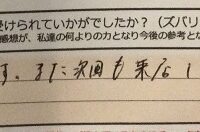 受けられていかがでしたか？（ズバリ
感想が、私達の何よりの力となり今後の参考とな
す。また次回も来ます